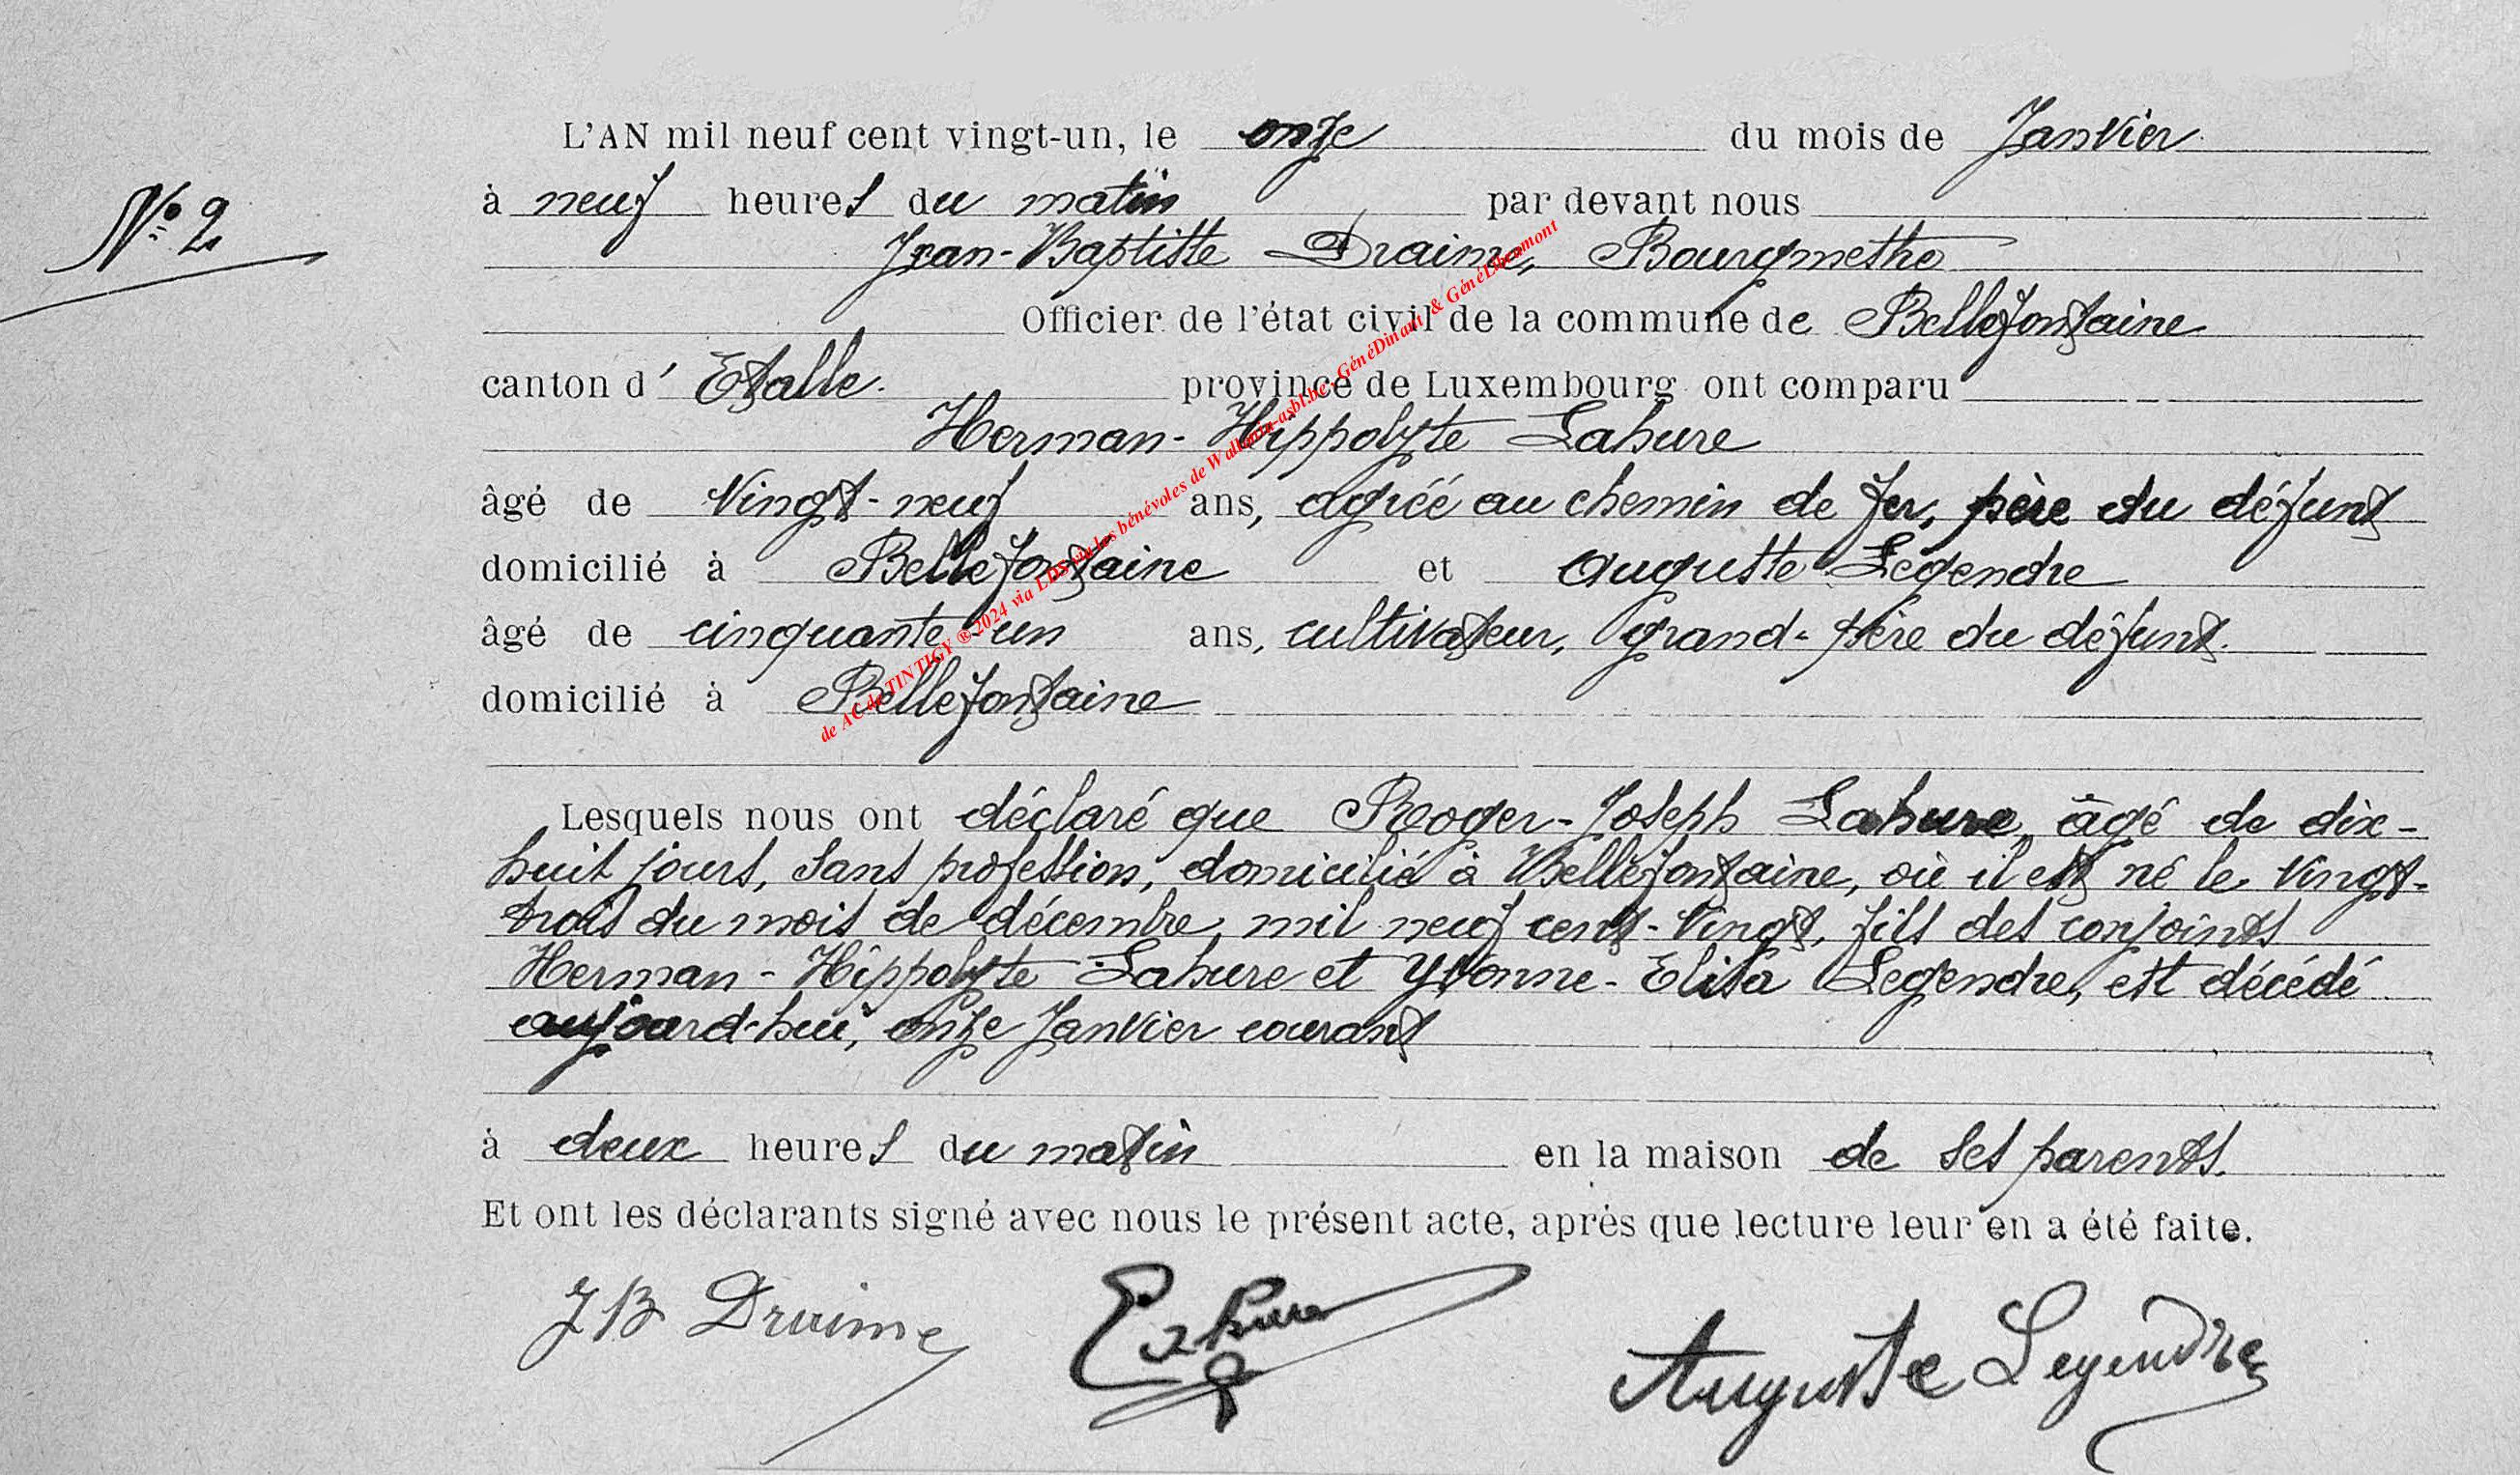 L'AN mil neuf cent vingt-un, le onze du mois de Janvier
N° 2
à neuf heures du matin par devant nous
Jean-Baptiste Draime, Bourgmestre
Officier de l'état civil de la commune de Bellefontaine
canton d' Etalle. province de Luxembourg ont comparu
Herman-Hippolyte Lahure
âgé de vingt-neuf ans, agréé au chemin de fer, père du défunt
domicilié à Bellefontaine et Auguste Legendre
âgé de cinquante-un ans, cultivateur, grand-père du défunt.
domicilié à Bellefontaine
Lesquels nous ont déclaré que Roger-Joseph Lahure, âgé de dix-
huit jours, sans profession, domicilié à Bellefontaine, où il est né le vingt-
trois du mois de décembre mil neuf cent-vingt, fils des conjoints
Herman-Hippolyte Lahure et Yvonne-Elisa Legendre, est décédé
aujourd-hui, onze Janvier courant
à deux heures du matin en la maison de ses parents.
Et ont les déclarants signé avec nous le présent acte, après que lecture leur en a été faite.
JB Draime Lahure Auguste Legendre
de AC de TINTIGY ® 2024 via LDS via les bénévoles de Wallonia-asbl.be - GénéDinant & GénéLibramont